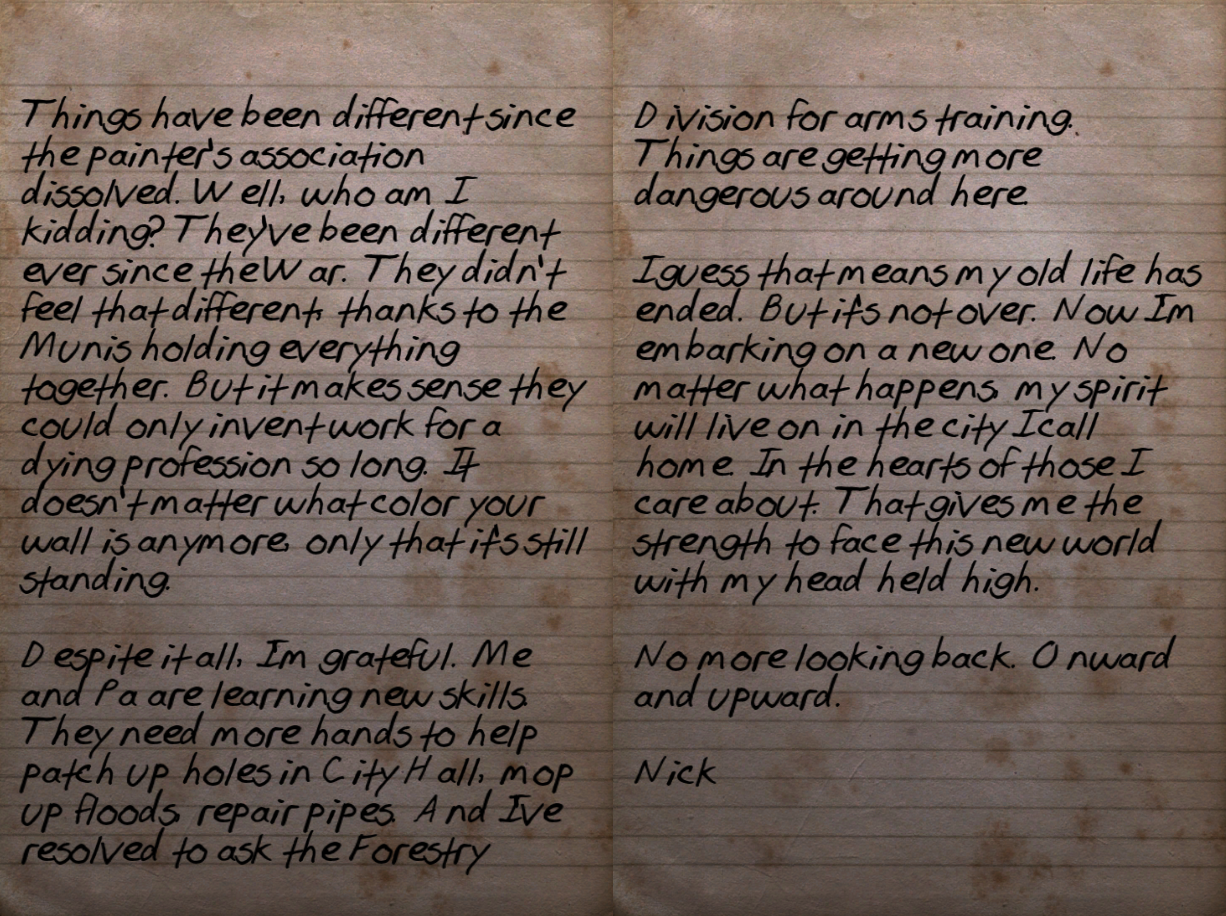 Things have been different since
the painter's association
dissolved. Well, who am I
kidding? They've been different
ever since the War. They didn't
feel that different, thanks to the
Munis holding everything
together. But it makes sense they
could only invent work for a
dying profession so long. It
doesn't matter what color your
wall is anymore, only that it's still
standing.

Despite it all, I'm grateful. Me
and Pa are learning new skills.
They need more hands to help
patch up holes in City Hall, mop
up floods, repair pipes. And I've
resolved to ask the Forestry

Division for arms training.
Things are getting more
dangerous around here.

I guess that means my old life has
ended. But it's not over. Now I'm
embarking on a new one. No
matter what happens, my spirit
will live on in the city I call
home. In the hearts of those I
care about. That gives me the
strength to face this new world
with my head held high.

No more looking back. Onward
and upward.

Nick